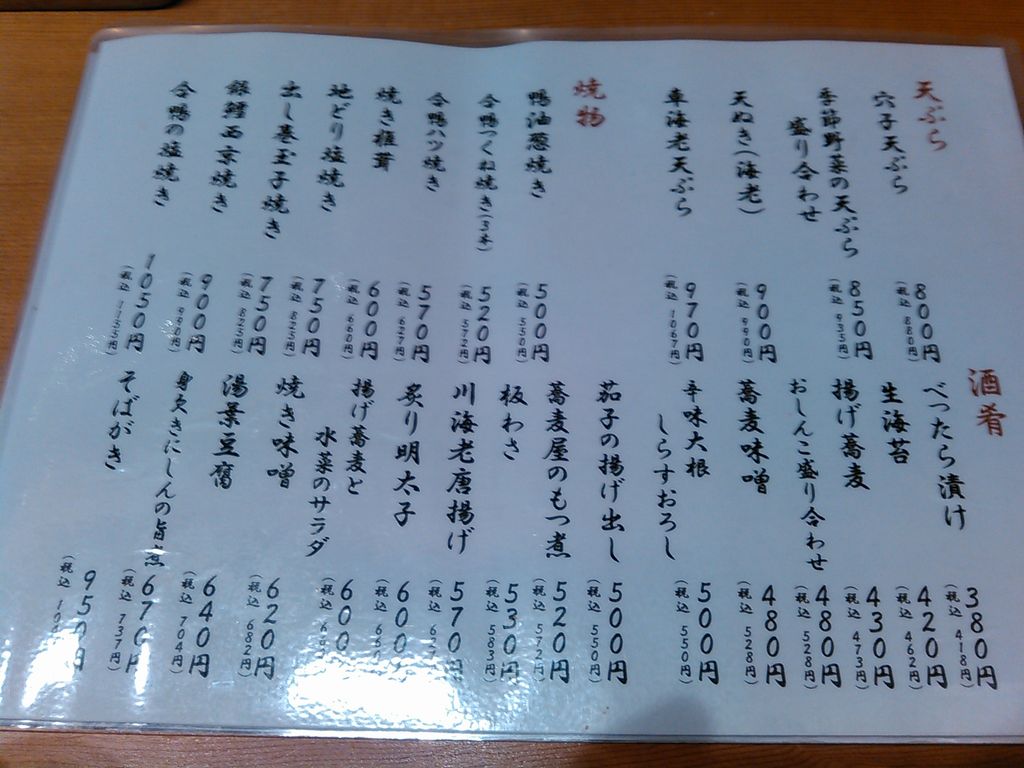 天ぷら
穴子天ぷら
800円
(税込 880円)
季節野菜の天ぷら
盛り合わせ
850円
(税込 935円)
天ぬき(海老)
900円
(税込 990円)
車海老天ぷら
970円
(税込 1067円)
焼物
鴨油葱焼き
500円
(税込 550円)
合鴨つくね焼き(3本)
520円
(税込 572円)
合鴨ハツ焼き
570円
(税込 627円)
焼き椎茸
600円
(税込 660円)
地どり塩焼き
750円
(税込 825円)
出し巻玉子焼き
750円
(税込 825円)
銀鱈西京焼き
900円
(税込 990円)
合鴨の塩焼き
1050円
(税込 1155円)
酒肴
べったら漬け
380円
(税込 418円)
生海苔
420円
(税込 462円)
揚げ蕎麦
430円
(税込 473円)
おしんこ盛り合わせ
480円
(税込 528円)
蕎麦味噌
480円
(税込 528円)
辛味大根
しらすおろし
500円
(税込 550円)
茄子の揚げ出し
500円
(税込 550円)
蕎麦屋のもつ煮
520円
(税込 572円)
板わさ
530円
(税込 583円)
川海老唐揚げ
570円
(税込
炙り明太子
600
(税込
揚げ蕎麦と
水菜のサラダ
600
(税込
焼き味噌
620円
(税込 682円)
湯葉豆腐
640円
(税込 704円)
身欠きにしんの旨煮
670円
(税込 737円)
そばがき
950円
(税込